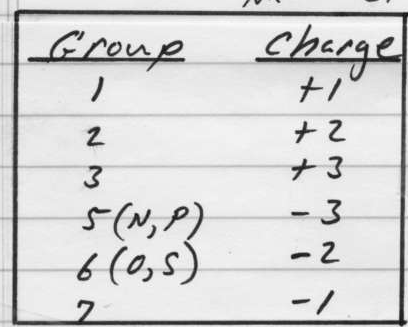 Group Charge
1 +1
2 +2
3 +3
5 (N, P) -3
6 (O, S) -2
7 -1